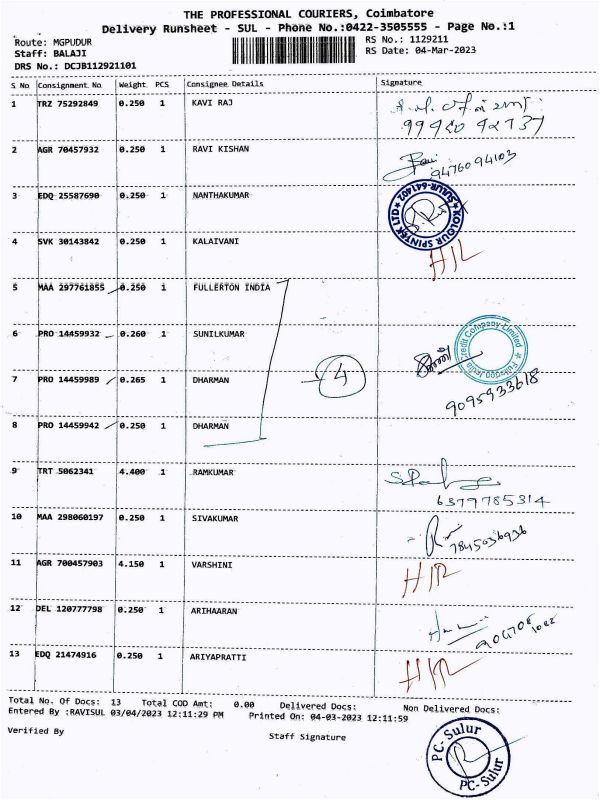 THE PROFESSIONAL COURIERS, Coimbatore
Delivery Runsheet - SUL - Phone No.:0422-3505555 - Page No.:1
Route: MGPUDUR
RS No.: 1129211
Staff: BALAJI
RS Date: 04-Mar-2023
DRS No.: DCJB112921101
S No Consignment No Weight PCS Consignee Details Signature
1 TRZ 75292849 0.250 1 KAVI RAJ
2 AGR 70457932 0.250 1 RAVI KISHAN
9476094103
3 EDQ 25587690 0.250 1 NANTHAKUMAR
KOLOUR SPINTEK LTD ★ SULUR-641402 ★
4 SVK 30143842 0.250 1 KALAIVANI
5 MAA 297761855 0.250 1 FULLERTON INDIA
6 PRO 14459932 0.260 1 SUNILKUMAR
Fullerton India Credit Company Limited ★
7 PRO 14459989 0.265 1 DHARMAN
4
9095933618
8 PRO 14459942 0.250 1 DHARMAN
9 TRT 5062341 4.400 1 RAMKUMAR
6379785314
10 MAA 298060197 0.250 1 SIVAKUMAR
7845036936
11 AGR 700457903 4.150 1 VARSHINI
12 DEL 120777798 0.250 1 ARIHAARAN
13 EDQ 21474916 0.250 1 ARIYAPRATTI
Total No. Of Docs: 13 Total COD Amt: 0.00 Delivered Docs: Non Delivered Docs:
Entered By :RAVISUL 03/04/2023 12:11:29 PM Printed On: 04-03-2023 12:11:59
Verified By
Staff Signature
PC-Sulur
PC-Sulur